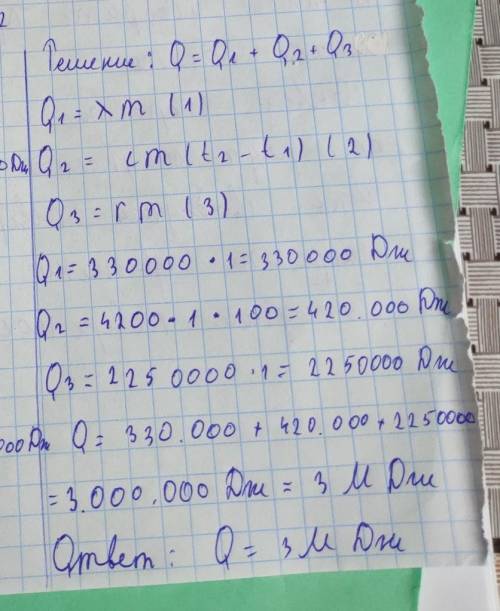 2
Решение: Q = Q1 + Q2 + Q3
Q1 = λm (1)
Дж Q2 = cm (t2 - t1) (2)
Q3 = rm (3)
Q1 = 330000 · 1 = 330000 Дж
Q2 = 4200 · 1 · 100 = 420.000 Дж
Q3 = 2250000 · 1 = 2250000 Дж
000 Дж Q = 330.000 + 420.000 + 2250000
= 3.000.000 Дж = 3 М Дж
Ответ: Q = 3 М Дж